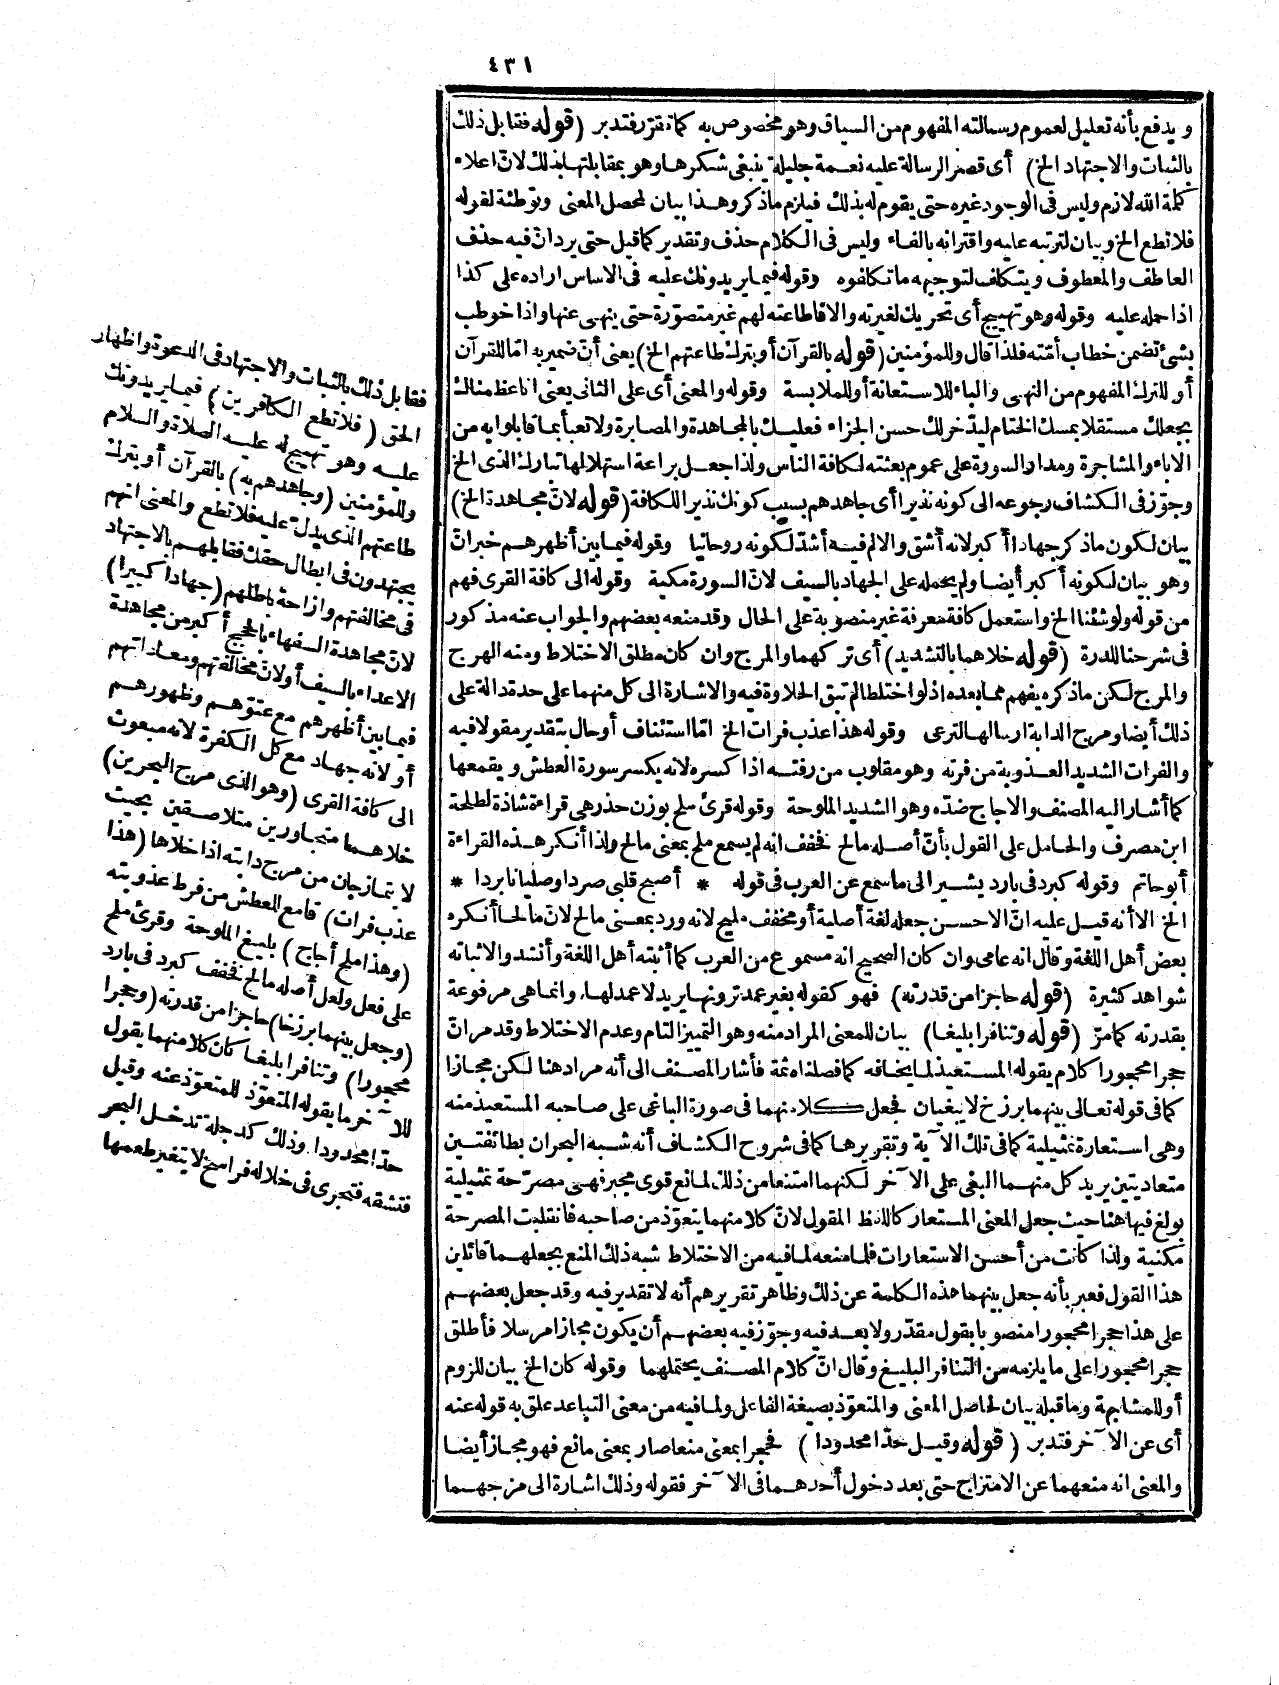 ٤٣١
ويدفع بأنه تعليل لعموم رسالته المفهوم من السياق وهو مخصوص به كما تقرّر فتدبر (قوله فقابل ذلك
بالثبات والاجتهاد الخ) أى قصر الرسالة عليه نعمة جليلة ينبغى شكرها وهو بمقابلتها بذلك لانّ اعلاء
كلمة الله لازم وليس فى الوجود غيره حتى يقوم له بذلك فيلزم ما ذكر وهذا بيان لمحصل المعنى وتوطئة لقوله
فلا تطع الخ وبيان لترتبه عليه واقترانه بالفاء وليس فى الكلام حذف وتقدير كما قيل حتى يرد انّ فيه حذف
العاطف والمعطوف ويتكلف لتوجيهه ما تكلفوه وقوله فيما يريدونك عليه فى الاساس اراده على كذا
اذا حمله عليه وقوله وهو تهييج أى تحريك لغيرته والا فاطاعته لهم غير متصوّرة حتى ينهى عنها واذا خوطب
بشئ تضمن خطاب أمّته فلذا قال وللمؤمنين (قوله بالقرآن أو بترك طاعتهم الخ) يعنى أنّ ضمير به امّا للقرآن
أو للترك المفهوم من النهى والباء للاستعانة أو للملابسة وقوله والمعنى أى على الثانى يعنى انا عظمناك
بجعلك مستقلا بمسك الختام ليدّخر لك حسن الجزاء فعليك بالمجاهدة والمصابرة ولا تعبأ بما قابلوا به من
الاباء والمشاجرة ومدار السورة على عموم بعثته لكافة الناس ولذا جعل براعة استهلالها تبارك الذى الخ
وجوّز فى الكشاف رجوعه الى كونه نذيرا أى جاهدهم بسبب كونك نذير اللكافة (قوله لانّ مجاهدة الخ)
بيان لكون ما ذكر جهادا أكبر لانه أشق والالم فيه أشدّ لكونه روحانيا وقوله فيما بين أظهرهم خبر انّ
وهو بيان لكونه أكبر أيضا ولم يحمله على الجهاد بالسيف لانّ السورة مكية وقوله الى كافة القرى فهم
من قوله ولو شئنا الخ واستعمل كافة معرفة غير منصوبة على الحال وقد منعه بعضهم والجواب عنه مذكور
فى شرحنا للدرة (قوله خلاهما بالتشديد) أى تركهما والمرج وان كان مطلق الاختلاط ومنه الهرج
والمرج لكن ما ذكره يفهم مما بعده اذ لو اختلطا لم تبق الحلاوة فيه والاشارة الى كل منهما على حدة دالة على
ذلك أيضا ومرج الدابة ارسالها لترعى وقوله هذا عذب فرات الخ امّا استئناف أو حال بتقدير مقولا فيه
والفرات الشديد العذوبة من فرته وهو مقلوب من رفته اذا كسره لانه يكسر سورة العطش ويقمعها
كما أشار اليه المصنف والاجاج ضدّه وهو الشديد الملوحة وقوله قرئ ملح بوزن حذر هى قراءة شاذة لطلحة
ابن مصرف والحامل على القول بأنّ أصله مالح فخفف انه لم يسمع ملح بمعنى مالح ولذا أنكر هذه القراءة
أبو حاتم وقوله كبرد فى بارد يشير الى ما سمع عن العرب فى قوله * أصبح قلبى صردا وصليانا بردا *
الخ الا أنه قيل عليه انّ الاحسن جعله لغة أصلية أو مخفف مليح لانه ورد بمعنى مالح لانّ مالحا أنكره
بعض أهل اللغة وقال انه عامى وان كان الصحيح انه مسموع من العرب كما أثبته أهل اللغة وأنشدوا لاثباته
شواهد كثيرة (قوله حاجزا من قدرته) فهو كقوله بغير عمد ترونها يريد لا عمد لها، وانما هى مرفوعة
بقدرته كما مرّ (قوله وتنافرا بليغا) بيان للمعنى المراد منه وهو التمييز التام وعدم الاختلاط وقد مر انّ
حجرا محجورا كلام يقوله المستعيذ لما يخافه كما فصلناه ثمة فأشار المصنف الى أنه مراد هنا لكن مجازا
كما فى قوله تعالى بينهما برزخ لا يبغيان فجعل كلا منهما فى صورة الباغى على صاحبه المستعيذ منه
وهى استعارة تمثيلية كما فى تلك الآية وتقريرها كما فى شروح الكشاف أنه شبه البحران بطائفتين
متعاديتين يريد كل منهما البغى على الآخر لكنهما امتنعا من ذلك لمانع قوى مجبر فهى مصرّحة تمثيلية
بولغ فيها هنا حيث جعل المعنى المستعار كاللفظ المقول لانّ كلا منهما يتعوّذ من صاحبه فانقلبت المصرحة
مكنية ولذا كانت من أحسن الاستعارات فلما منعه لما فيه من الاختلاط شبه ذلك المنع بجعلهما قائلين
هذا القول فعبر بأنه جعل بينهما هذه الكلمة عن ذلك وظاهر تقريرهم أنه لا تقدير فيه وقد جعل بعضهم
على هذا حجرا محجورا منصوبا بقول مقدّر ولا بعد فيه وجوّز فيه بعضهم أن يكون مجازا مرسلا فأطلق
حجرا محجورا على ما يلزمه من التنافر البليغ وقال انّ كلام المصنف يحتملهما وقوله كان الخ بيان للزوم
أو للمشابهة وما قبله بيان لحاصل المعنى والمتعوّذ بصيغة الفاعل ولما فيه من معنى التباعد علق به قوله عنه
أى عن الآخر فتدبر (قوله وقيل حدّا محدودا) فحجرا بمعنى منعا صار بمعنى مانع فهو مجاز أيضا
والمعنى انه منعهما عن الامتزاج حتى بعد دخول أحدهما فى الآخر فقوله وذلك اشارة الى مزجهما
فقابل ذلك بالثبات والاجتهاد فى الدعوة واظهار
الحق (فلا تطع الكافرين) فيما يريدونك
عليه وهو تهييج له عليه الصلاة والسلام
وللمؤمنين (وجاهدهم به) بالقرآن أو بترك
طاعتهم الذى يدلّ عليه فلا تطع والمعنى انهم
يجتهدون فى ابطال حقك فقابلهم بالاجتهاد
فى مخالفتهم وازاحة باطلهم (جهادا كبيرا)
لانّ مجاهدة السفهاء بالحجج أكبر من مجاهدة
الاعداء بالسيف أو لانّ مخالفتهم ومعاداتهم
فيما بين أظهرهم مع عتوّهم وظهورهم
أو لانه جهاد مع كل الكفرة لانه مبعوث
الى كافة القرى (وهو الذى مرج البحرين)
خلاهما متجاورين متلاصقين بحيث
لا يتمازجان من مرج دابته اذا خلاها (هذا
عذب فرات) قامع للعطش من فرط عذوبته
(وهذا ملح أجاج) بليغ الملوحة وقرئ ملح
على فعل ولعل أصله مالح فخفف كبرد فى بارد
(وجعل بينهما برزخا) حاجزا من قدرته (وحجرا
محجورا) وتنافرا بليغا كان كلا منهما يقول
للآخر ما يقوله المتعوّذ للمتعوّذ عنه وقيل
حدّا محدودا وذلك كدجلة تدخل البحر
فتشقه فتجرى فى خلاله فراسخ لا يتغير طعمها